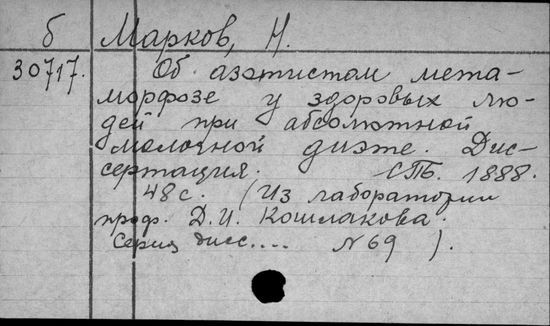 б Марков, Н.
30717. Об азотистом мета-
морфозе у здоровых лю-
дей при абсолютной
молочной диэте. Дис-
сертация. СПб. 1888.
48 с. (Из лаборатории
проф. Д.И. Кошлакова.
Серия дисс.... N 69 ).